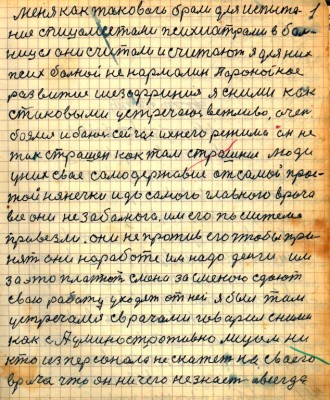 меня как таковогь брали для испыта- 1
ние специалетами психиатрами в бол-
нице они считали и считают я для них
псих болной не нармалин Паронойное
развитие шезофрения я сними как
стаковыми устречаюс вежливо, очен
боялся и баюс сейчас ихнего режима он не
так страшен как там страшние люди
у них свае самодержавие от самой прос-
той нанечки и до самого главного врача
все они не за болного, им его по системе
привезли, они не против его чтобы при-
нят они на работе им надо денги им
за это платют смена за сменою сдают
сваю работу уходят от ней я был там
устречался с врачами гаварил с ними
как с Административно лицым ни
кто из персонала не скажет на сваего
врача что он ничего не знает всегда